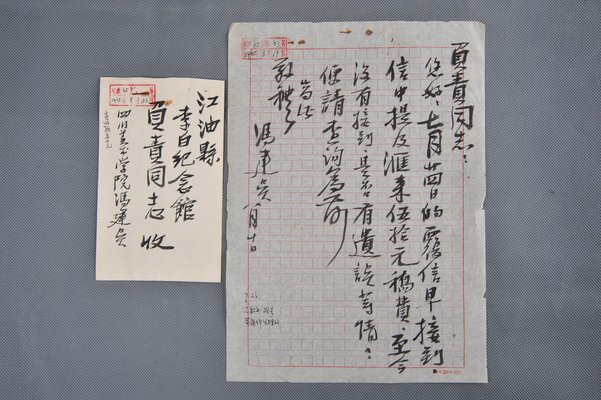 負責同志：
您好，七月廿四日的覆信早接到
信中提及匯來伍拾元稿費，至今
沒有接到，是否有遺誤等情；
便請查詢爲荷
耑此
敬礼
馮建吴 八月十日
江油縣
李白紀念館
負責同志收
四川美术学院馮建吴